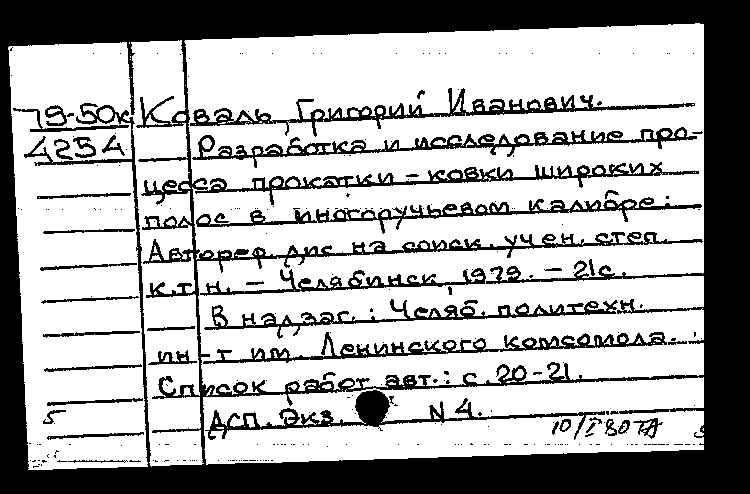 79-50к Коваль, Григорий Иванович.
4254 Разработка и исследование про-
цесса прокатки - ковки широких
полос в многоручьевом калибре:
Автореф. дис на соиск. учен. степ.
к.т.н. - Челябинск, 1979. - 21с.
В надзаг.: Челяб. политехн.
ин-т им. Ленинского комсомола.
Список работ авт.: с. 20-21.
5 ДСП. Экз. N 4.